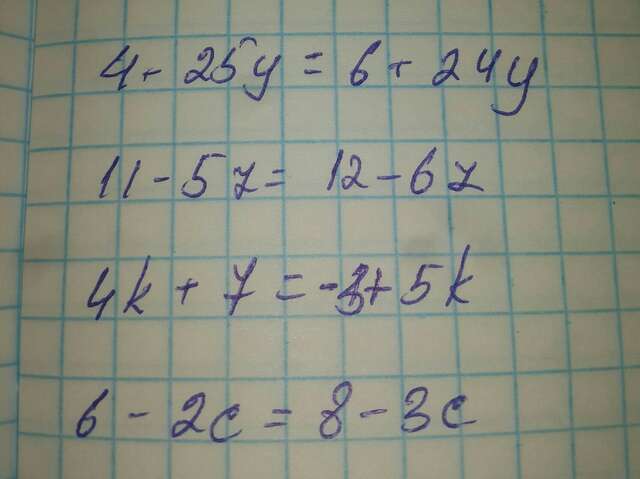 4 - 25y = 6 + 24y
11 - 5z = 12 - 6z
4k + 7 = -3 + 5k
6 - 2c = 8 - 3c